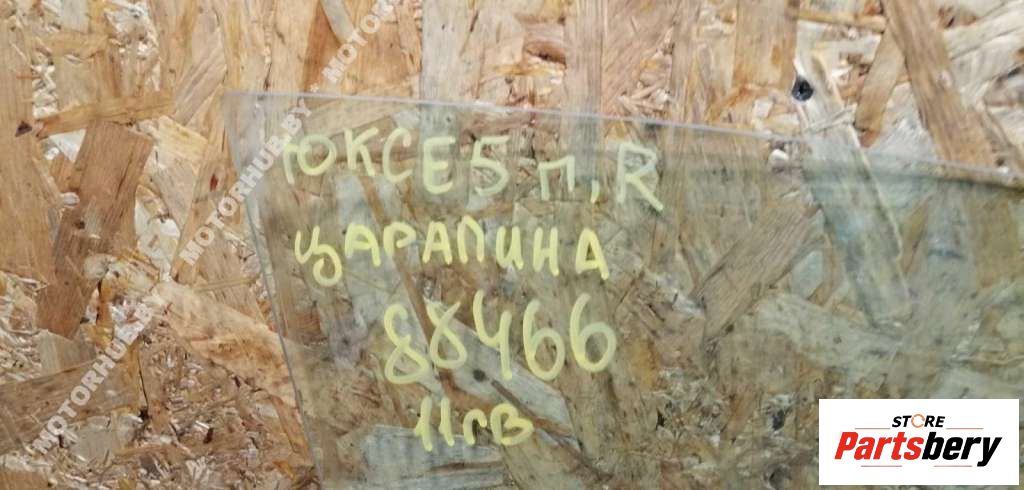 ЮКСЕ5 П, R
ЦАРАПИНА
88466
11гв
MOTORHUB.BY
MOTORHUB.BY
MOTORHUB.BY
STORE
Partsbery